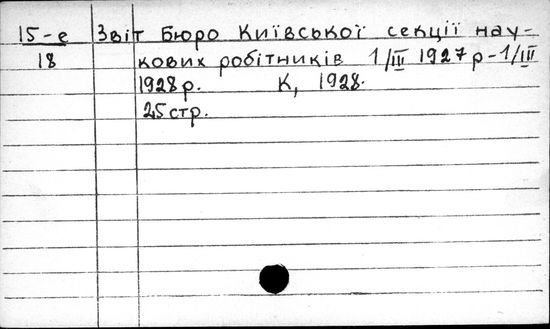 15-е Звіт Бюро Київської секції нау-
18 кових робітників 1/III 1927 р - 1/III
1928 р. К, 1928.
25 стр.